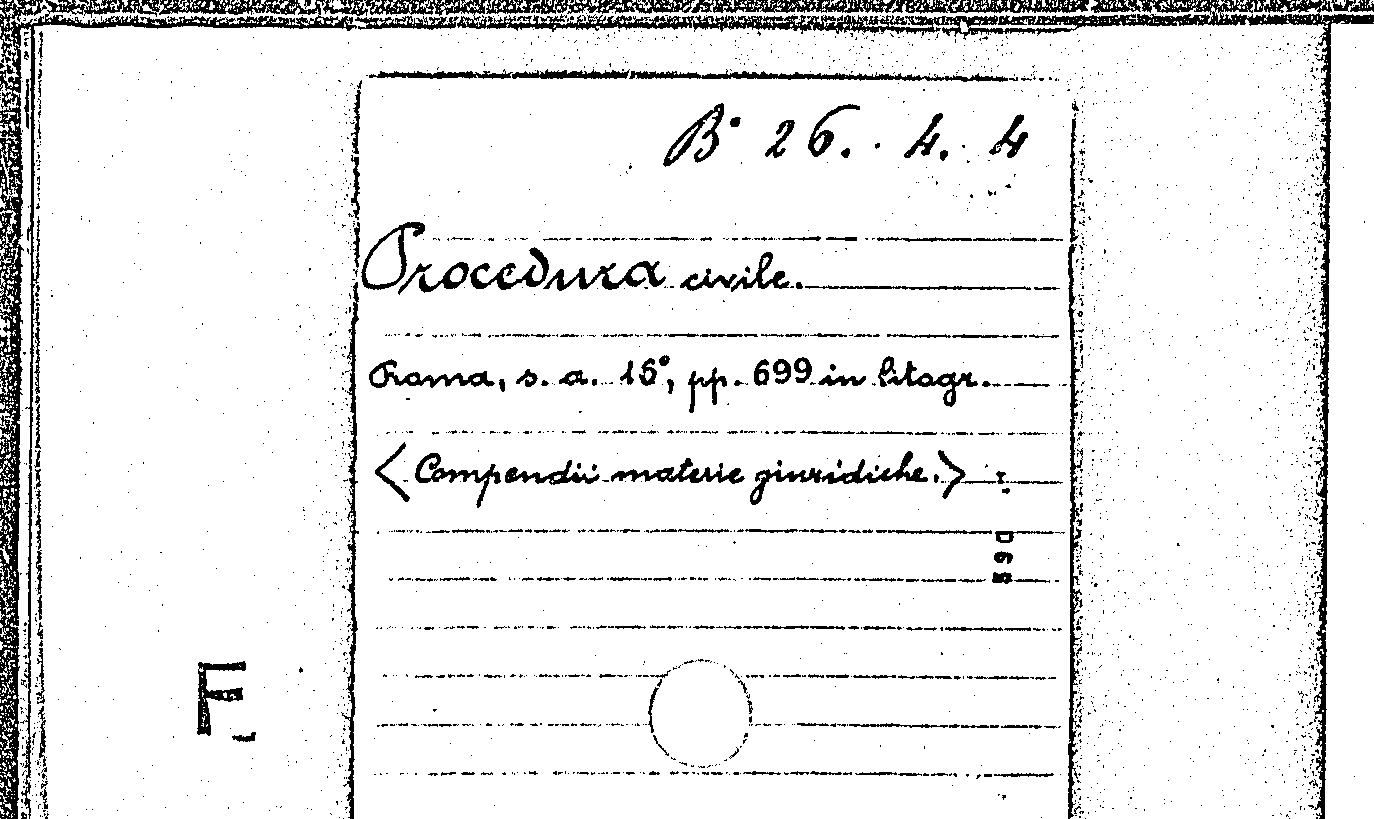 B° 26. 4. 4
Procedura civile.
Roma, s. a. 16°, pp. 699 in litogr.
<Compendii materie giuridiche.>